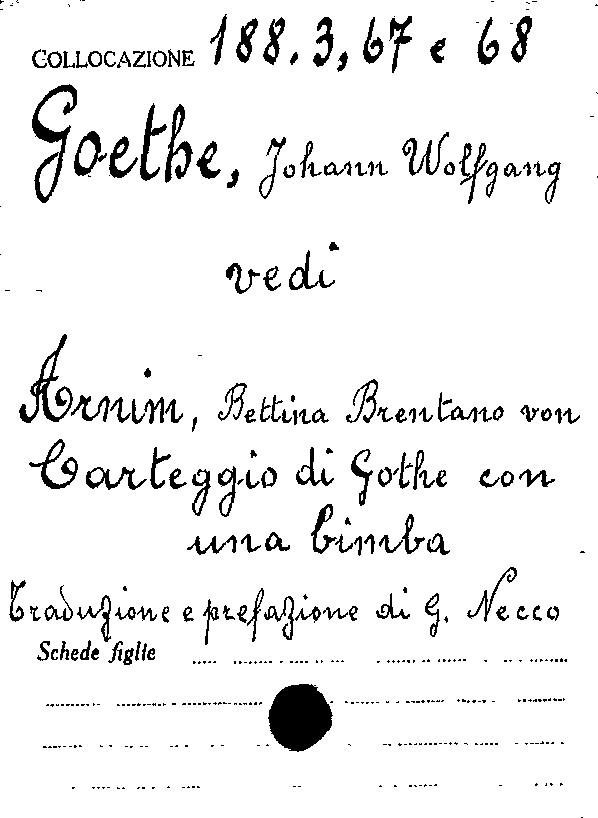 COLLOCAZIONE 188.3,67 e 68
Goethe, Johann Wolfgang
vedi
Arnim, Bettina Brentano von
Carteggio di Gothe con
una bimba
Traduzione e prefazione di G. Necco
Schede figlie